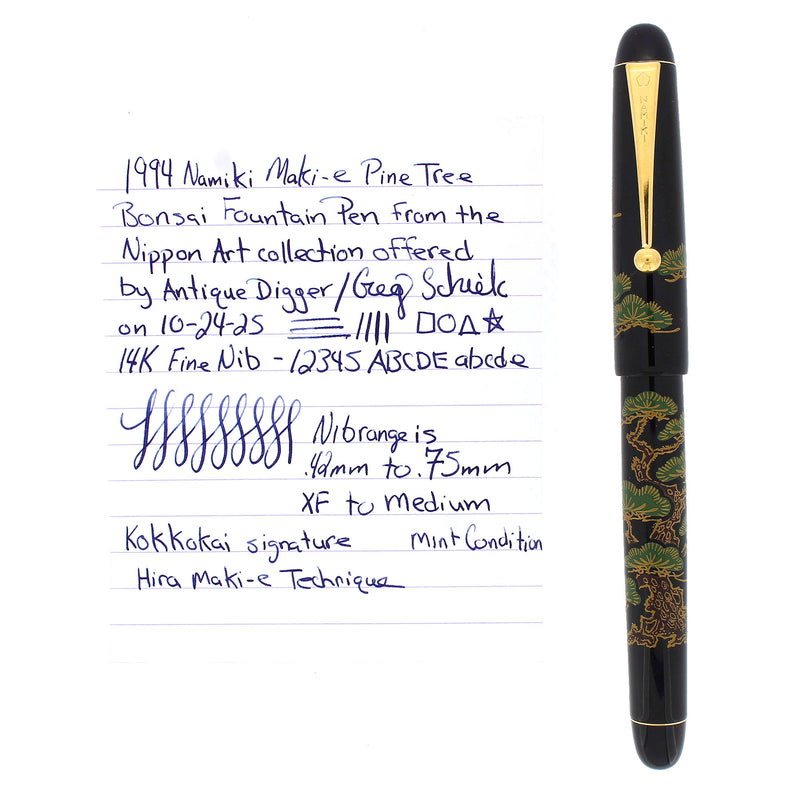 1994 Namiki Maki-e Pine Tree
Bonsai Fountain Pen from the
Nippon Art collection offered
by Antique Digger/Greg Schiek
on 10-24-25
14K Fine Nib - 12345 ABCDE abcde
Nib range is
.42mm to .75mm
XF to Medium
Kokkokai signature Mint Condition
Hira Maki-e Technique
NAMIKI